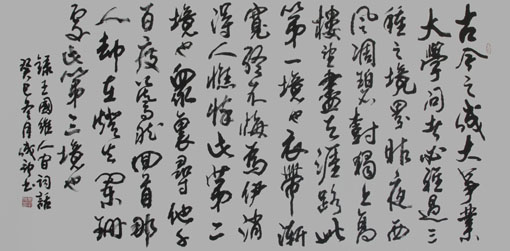 古今之成大事業
大學問者必經過三
種之境界昨夜西
風凋碧樹獨上高
樓望盡天涯路此
第一境也衣帶漸
寬終不悔爲伊消
得人憔悴此第二
境也眾裏尋他千
百度驀然回首那
人却在燈火闌珊
處此第三境也
錄王國維人间詞話
癸巳冬月成书